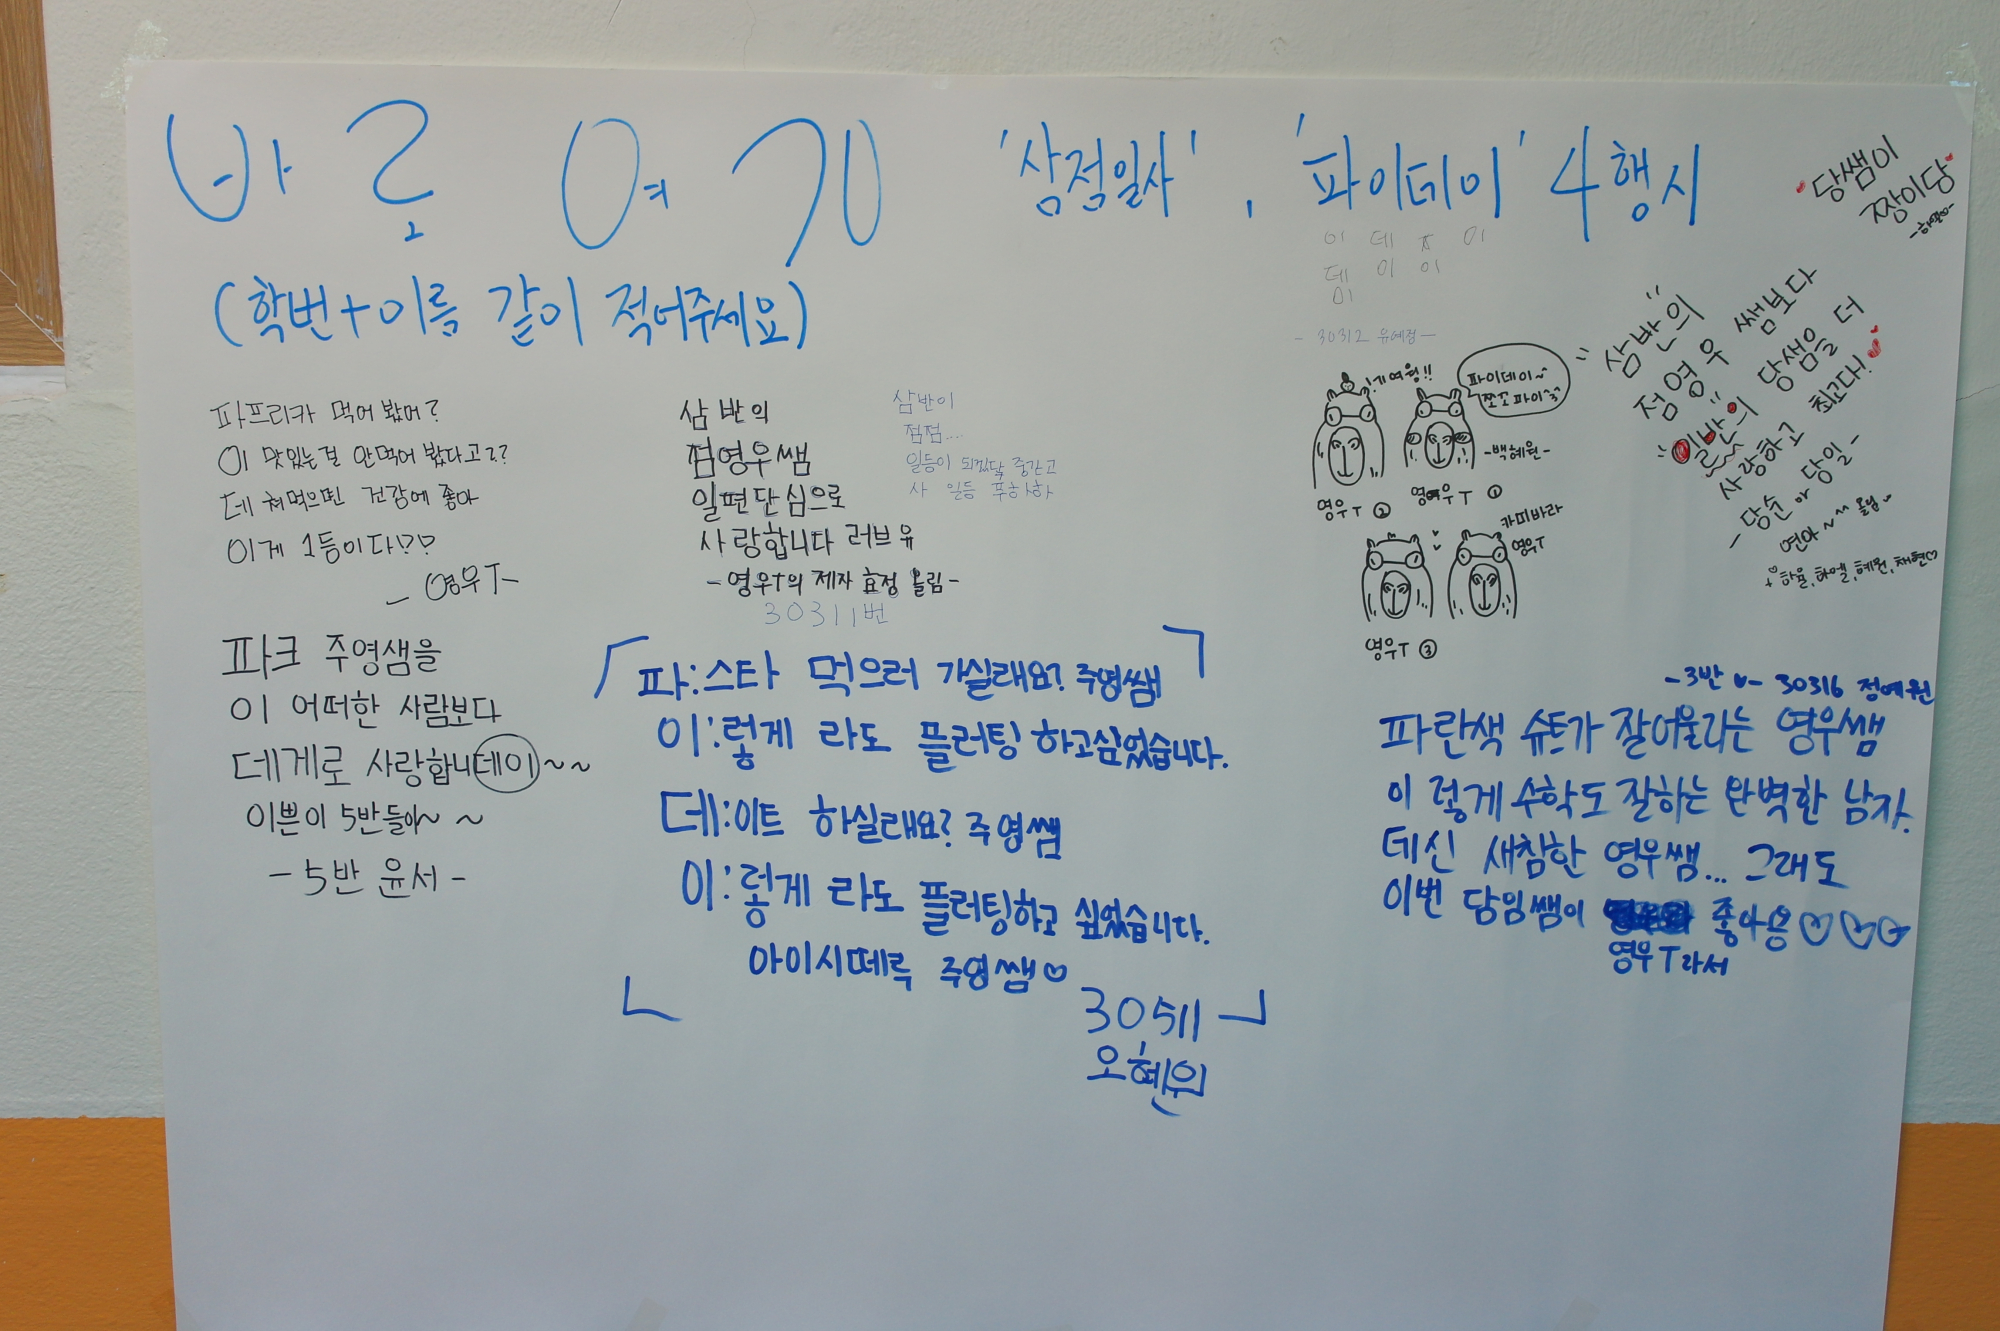 바로 여기 '삼점일사', '파이데이' 4행시
(학번+이름 같이 적어주세요)
당쌤이
짱이당
파프리카 먹어 봤어?
이 맛있는걸 안먹어 봤다고??
데쳐먹으면 건강에 좋아
이게 1등이다!?
- 영우T-
파크 주영샘을
이 어떠한 사람보다
데게로 사랑합니데이~~
이쁜이 5반들아~ ~
- 5반 윤서 -
삼반의
점영우쌤
일편단심으로
사랑합니다 러브유
- 영우T의 제자 효정 올림 -
30311번
삼반이
점점....
일등이 되겠닭 중간고
사 일등 푸하하하
파:스타 먹으러 가실래요? 주영쌤
이:렇게 라도 플러팅 하고싶었습니다.
데:이트 하실래요? 주영쌤
이:렇게 라도 플러팅하고 싶었습니다.
아이시떼루 주영쌤♡
30511
오혜원
이 데 이
데 이 이
이
- 30312 유예점 -
기여웡!!
파이데이~
쪼꼬파이^3^
-백혜원-
영우T ②
영우T ①
카피바라
영우T
영우T ③
삼반의
점영우 쌤보다
일반의 당샘을 더
사랑하고 최고다!
- 당순이 당일 -
연아~^^ 올림
+ 하율, 하엘, 혜원, 채현♡
-3반 ♥- 30316 정예원
파란색 슈트가 잘어울리는 영우쌤
이렇게 수학도 잘하는 완벽한 남자.
데신 새침한 영우쌤... 그래도
이번 담임쌤이 좋아용♡♡♡
영우T라서